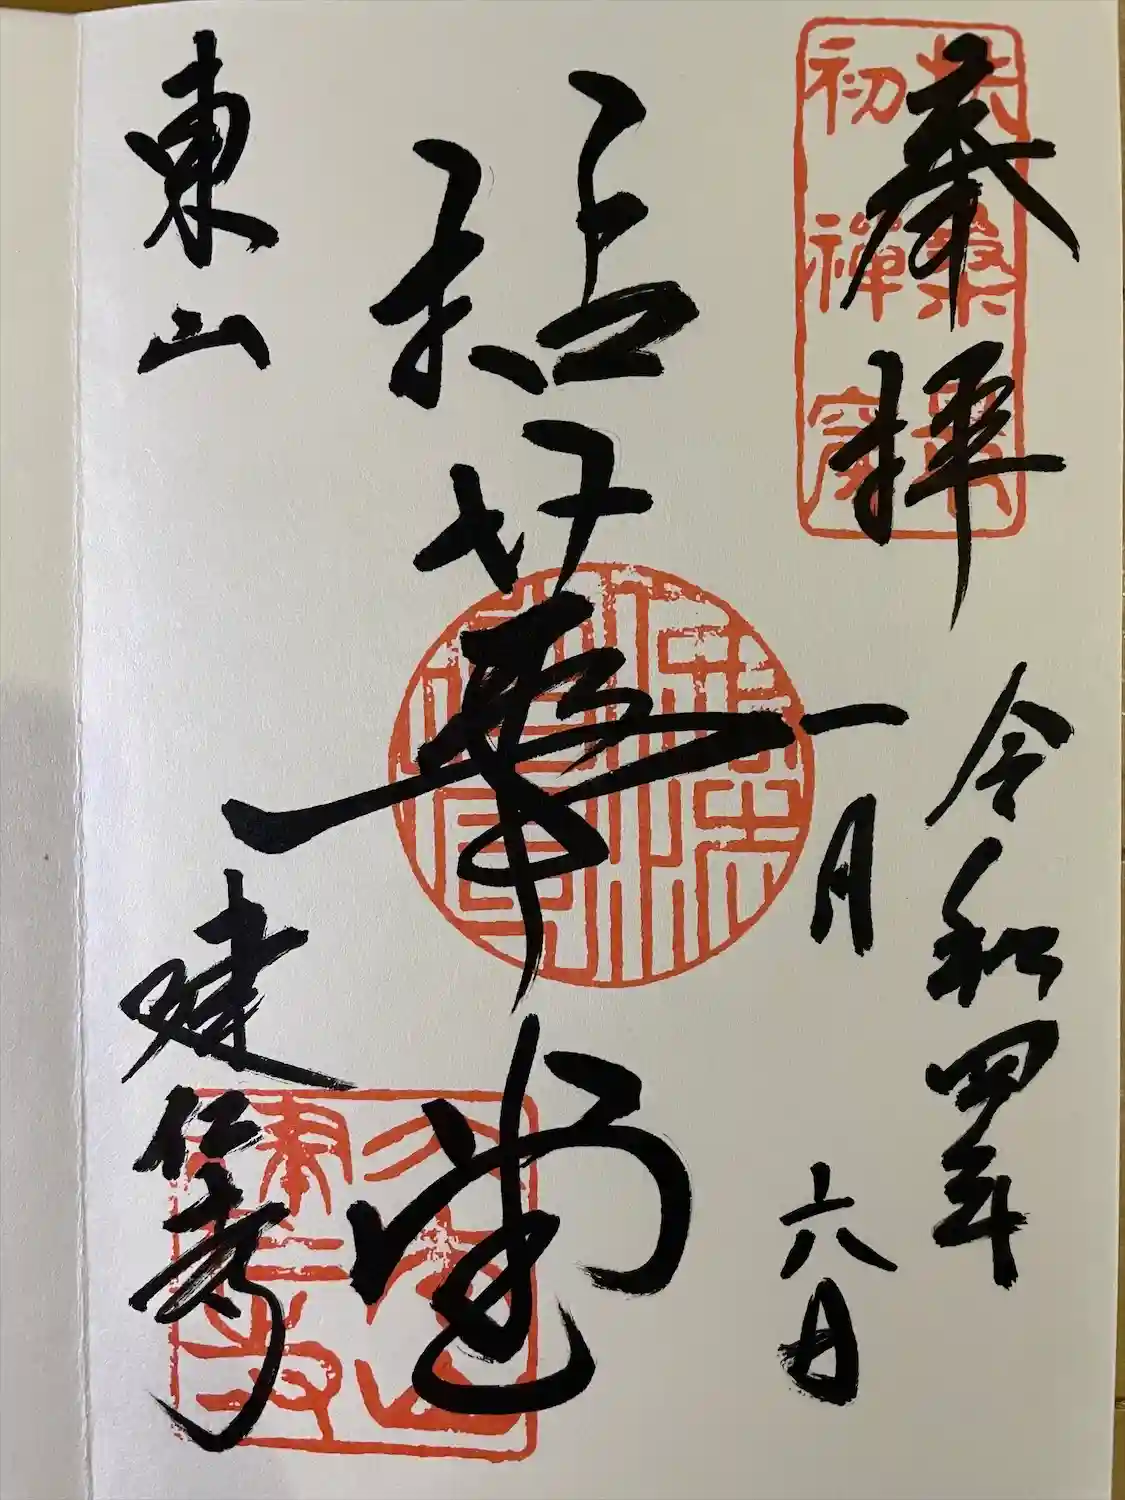 奉拝
扶桑最
初禪窟
令和四年
一月六日
拈華堂
東山
建仁寺